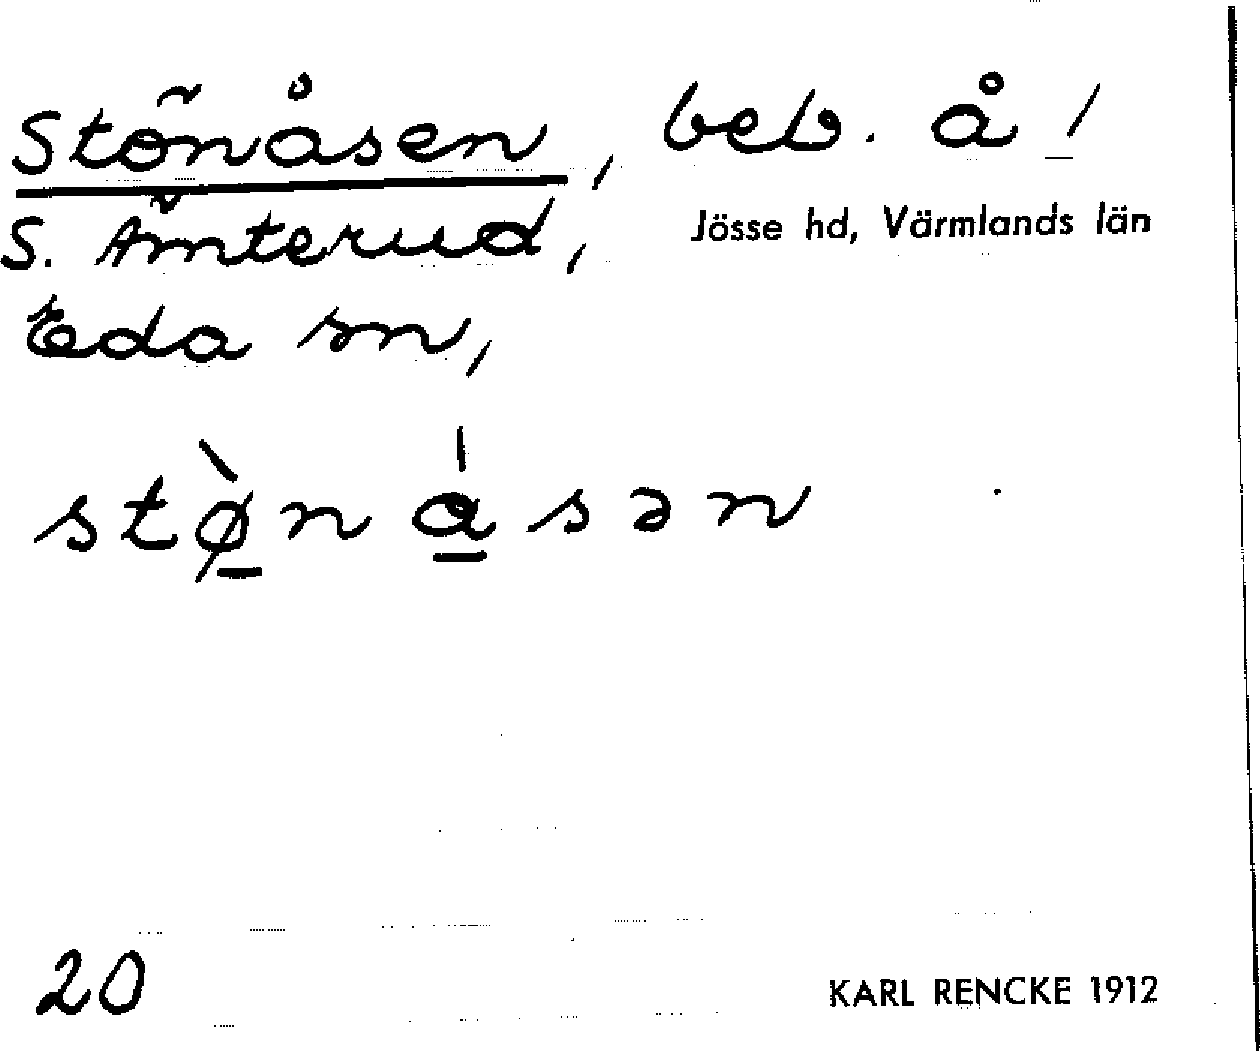 Stönåsen, beb. å /
S. Ämterud, Jösse hd, Värmlands län
Eda sn,
stø̀nåsən
20 KARL RENCKE 1912